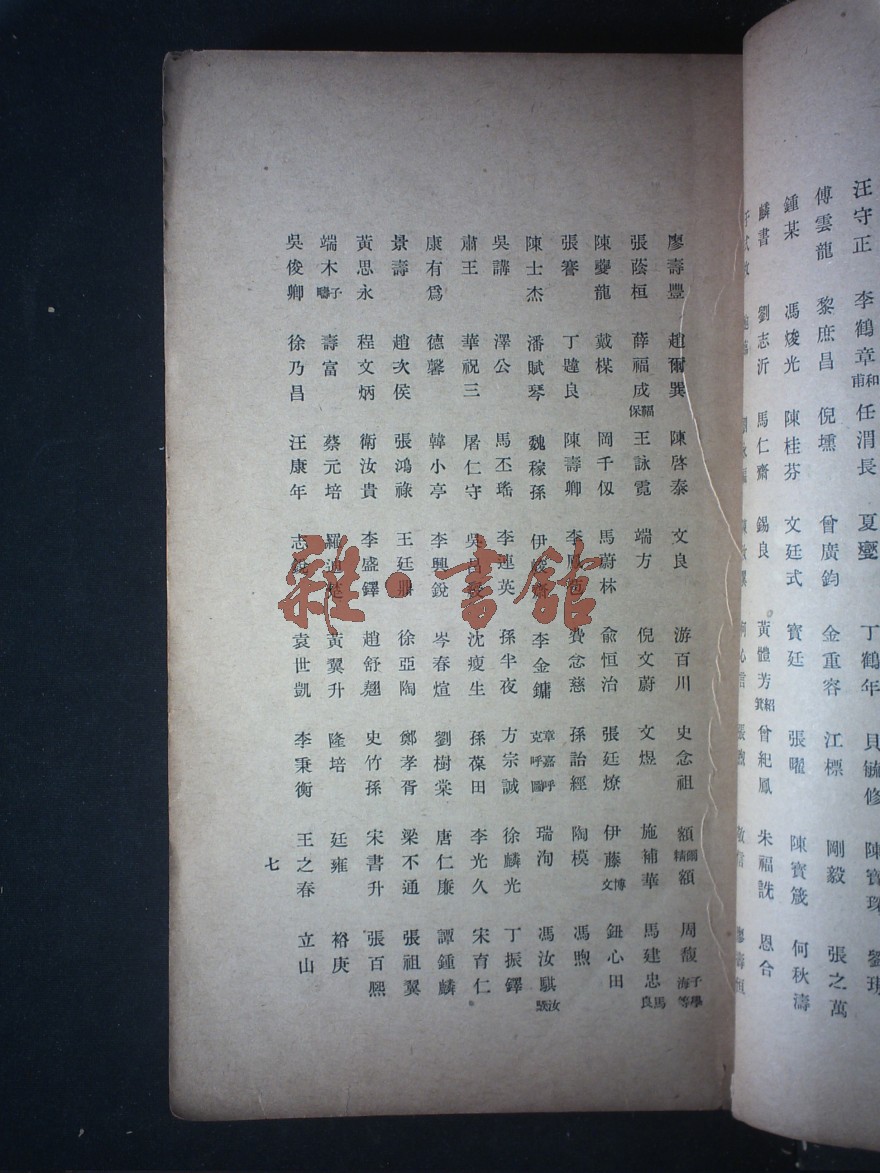 汪守正 李鶴章和甫 任渭長 夏燮 丁鶴年 貝毓修 陳寶琛
傅雲龍 黎庶昌 倪壎 曾廣鈞 金重容 江標 剛毅 張之萬
鍾某 馮焌光 陳桂芬 文廷式 寳廷 張曜 陳寶箴 何秋濤
麟書 劉志沂 馬仁齋 錫良 黃體芳紹箕 曾紀鳳 朱福詵 恩合
廖壽豐 趙爾巽 陳啓泰 文良 游百川 史念祖 額爾精額 周馥子學海等
張蔭桓 薛福成福保 王詠霓 端方 倪文蔚 文煜 施補華 馬建忠馬良
陳夔龍 戴楳 岡千仭 馬蔚林 俞恒治 張廷燎 伊藤博文 鈕心田
張謇 丁韙良 陳壽卿 費念慈 孫詒經 陶模 馮煦
陳士杰 潘賦琴 魏稼孫 李金鏞 章嘉呼克呼圖 瑞洵 馮汝騤汝騏
吳講 澤公 馬丕瑤 李連英 孫半夜 方宗誠 徐麟光 丁振鐸
肅王 華祝三 屠仁守 沈瘦生 孫葆田 李光久 宋育仁
康有爲 德馨 韓小亭 李興銳 岑春煊 劉樹棠 唐仁廉 譚鍾麟
景壽 趙次侯 張鴻祿 王廷鼎 徐亞陶 鄭孝胥 梁不通 張祖翼
黃思永 程文炳 衛汝貴 李盛鐸 趙舒翹 史竹孫 宋書升 張百熙
端木子疇 壽富 蔡元培 黃翼升 隆培 廷雍 裕庚
吳俊卿 徐乃昌 汪康年 袁世凱 李秉衡 王之春 立山
七
雜·書館